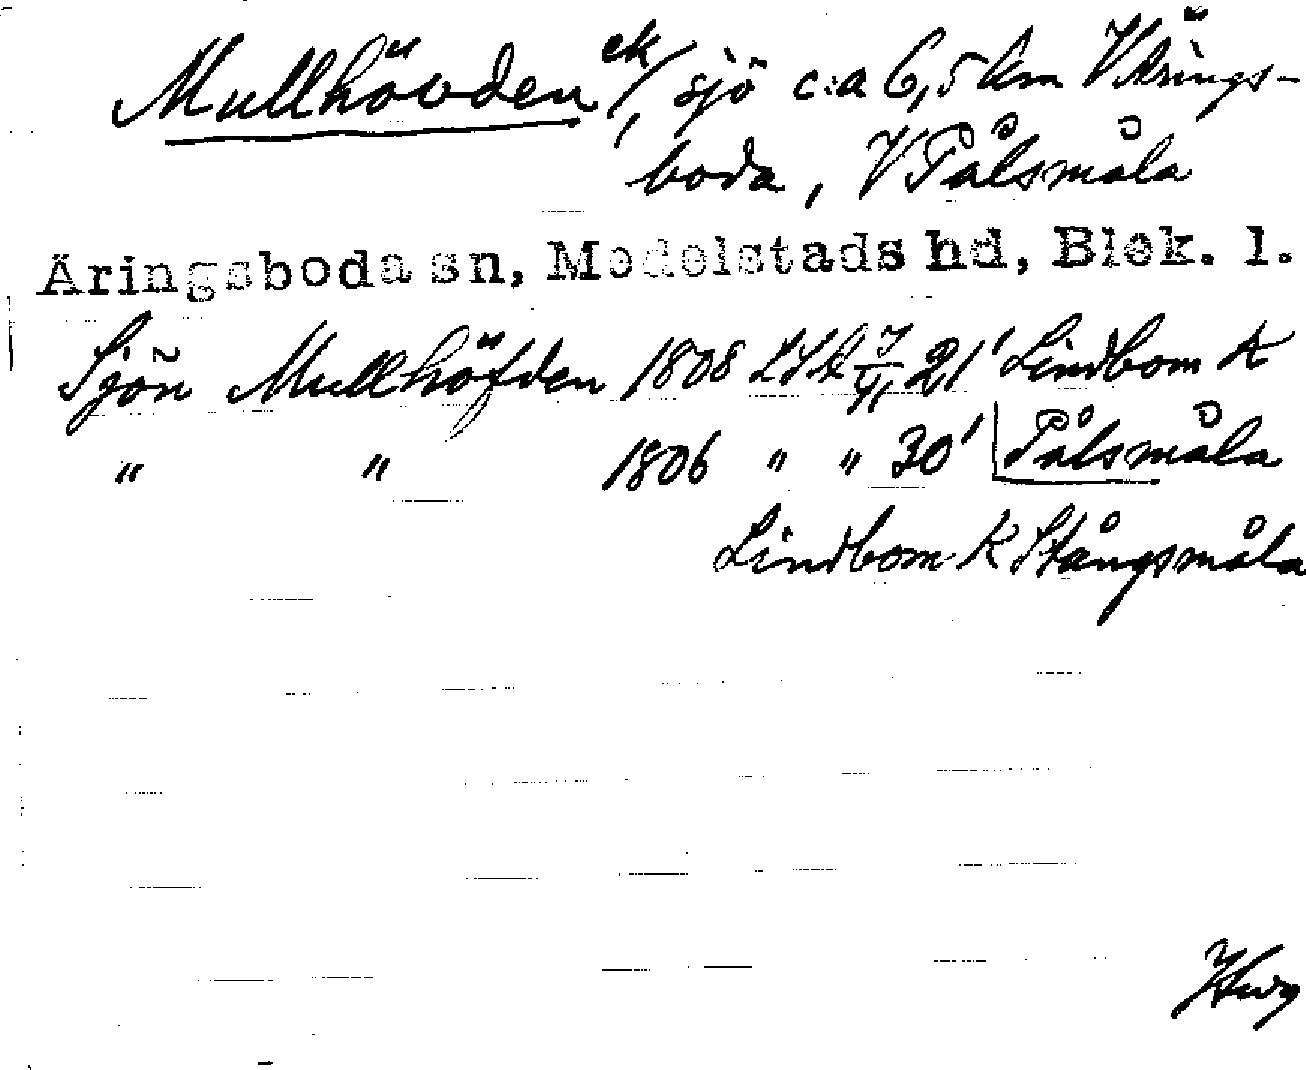 Mullhövden ek/, sjö c:a 6,5 km V Ärings-
boda, V Pålsmåla
Äringsboda sn, Medelstads hd, Blek. l.
Sjön Mullhöfden 1808 LSA 21' Lindbom K
" " 1806 " " 30' Pålsmåla
Lindbom K Stångsmåla